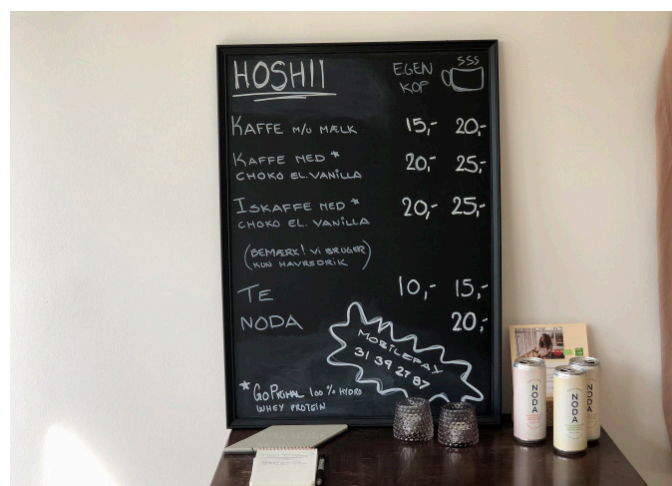 HOSHII
EGEN
KOP
KAFFE M/U MÆLK 15,- 20,-
KAFFE MED * 20,- 25,-
CHOKO EL. VANILLA
ISKAFFE MED * 20,- 25,-
CHOKO EL. VANILLA
(BEMÆRK! VI BRUGER
KUN HAVREDRIK)
TE 10,- 15,-
NODA 20,-
MOBILEPAY
31 39 27 87
* GOPRIMAL 100% HYDRO
WHEY PROTEIN
NODA
NODA
NODA